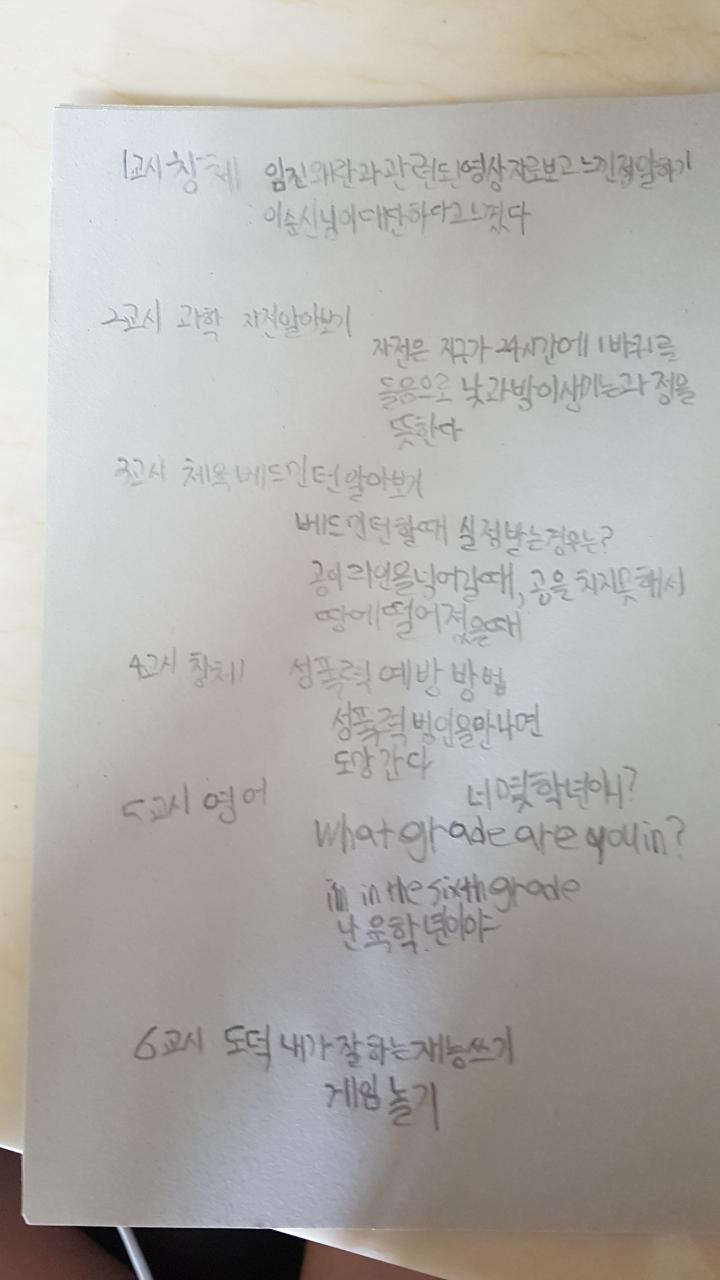 1교시 창체 임진왜란과 관련된 영상자료보고 느낀점말하기
이순신님이 대단하다고 느꼈다
2교시 과학 자전알아보기
자전은 지구가 24시간에 1바퀴를
돌음으로 낮과 밤이 생기는 과정을
뜻한다
3교시 체육 베드민턴 알아보기
베드민턴할때 실점받는 경우는?
공이 라인을 넉어갈때, 공을 치지못해서
땅에 떨어젔을때
4교시 창체 성폭력 예방 방법
성폭력 범인을 만나면
도망간다
5교시 영어 너 몇학년이니?
What grade are you in?
im in the sixth grade
난 육학년이야
6교시 도덕 내가 잘하는 재능쓰기
게임 놀기